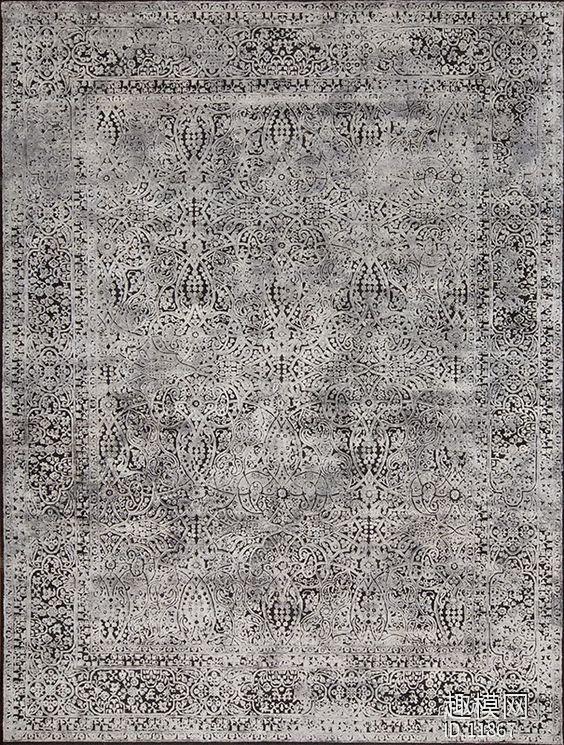 趣模网
ID:11867